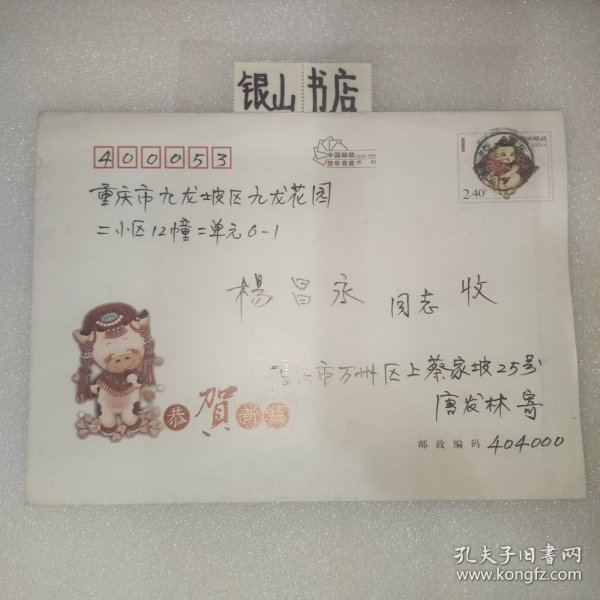 银山书店
400053
中国邮政
贺年有奖
中国邮政
CHINA
2.40
重庆市九龙坡区九龙花园
二小区12幢二单元6-1
楊昌永 同志 收
重庆市万州区上蔡家坡25号
唐发林寄
恭賀新禧
邮政编码 404000
孔夫子旧书网
www.kongfz.com